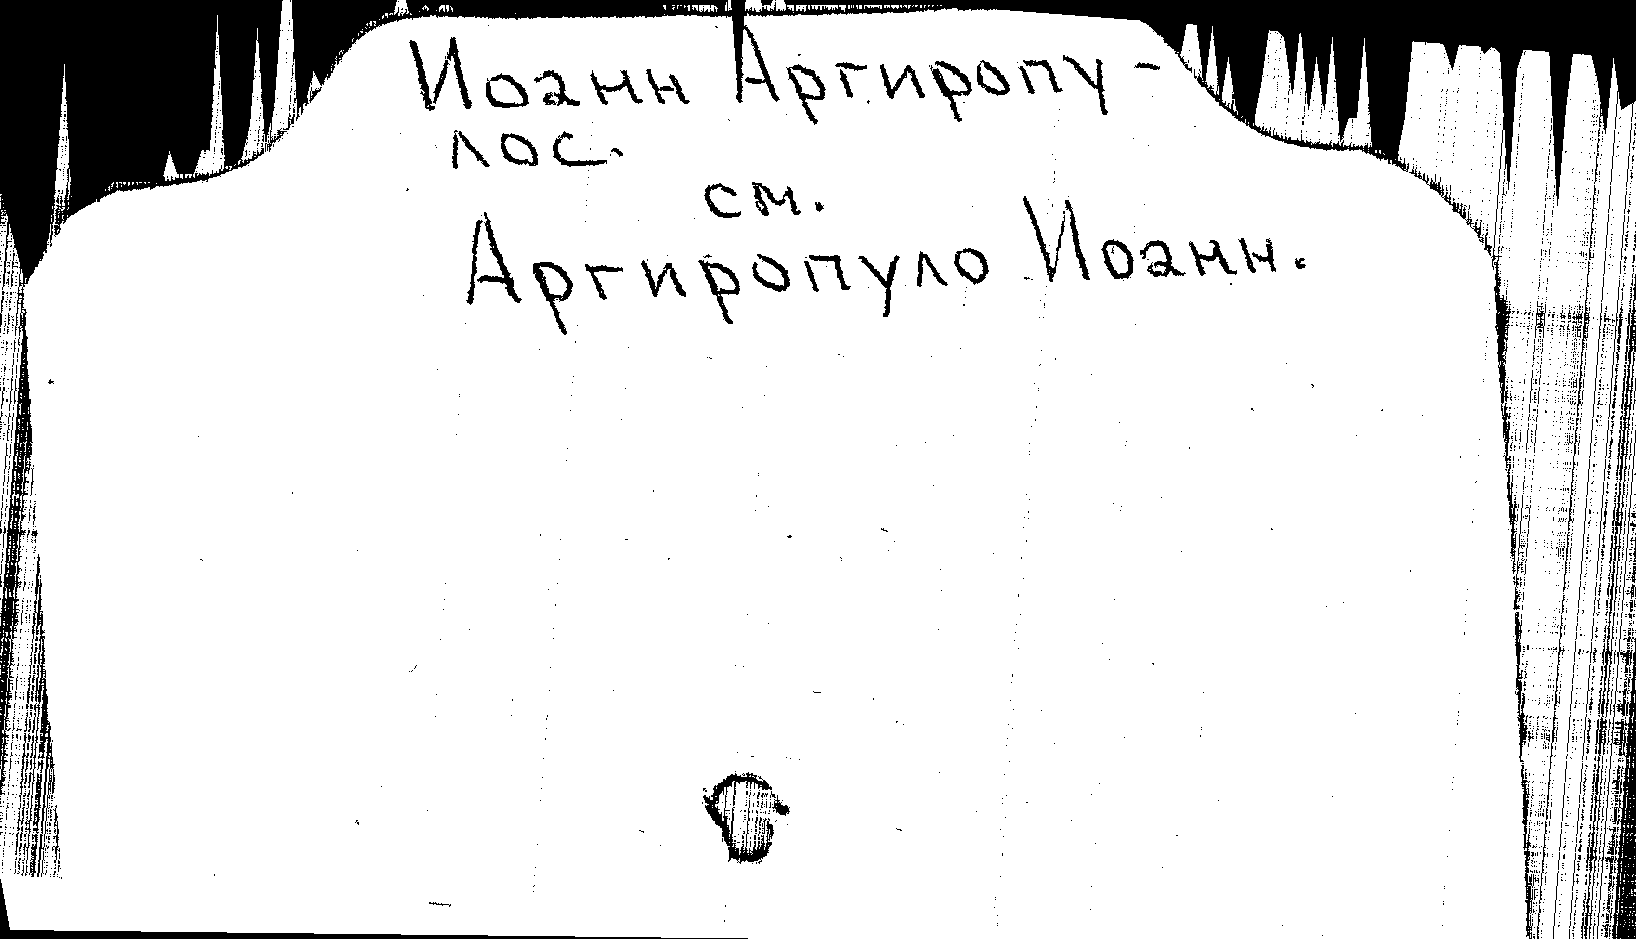 Иоанн Аргиропу-
лос.
см.
Аргиропуло Иоанн.